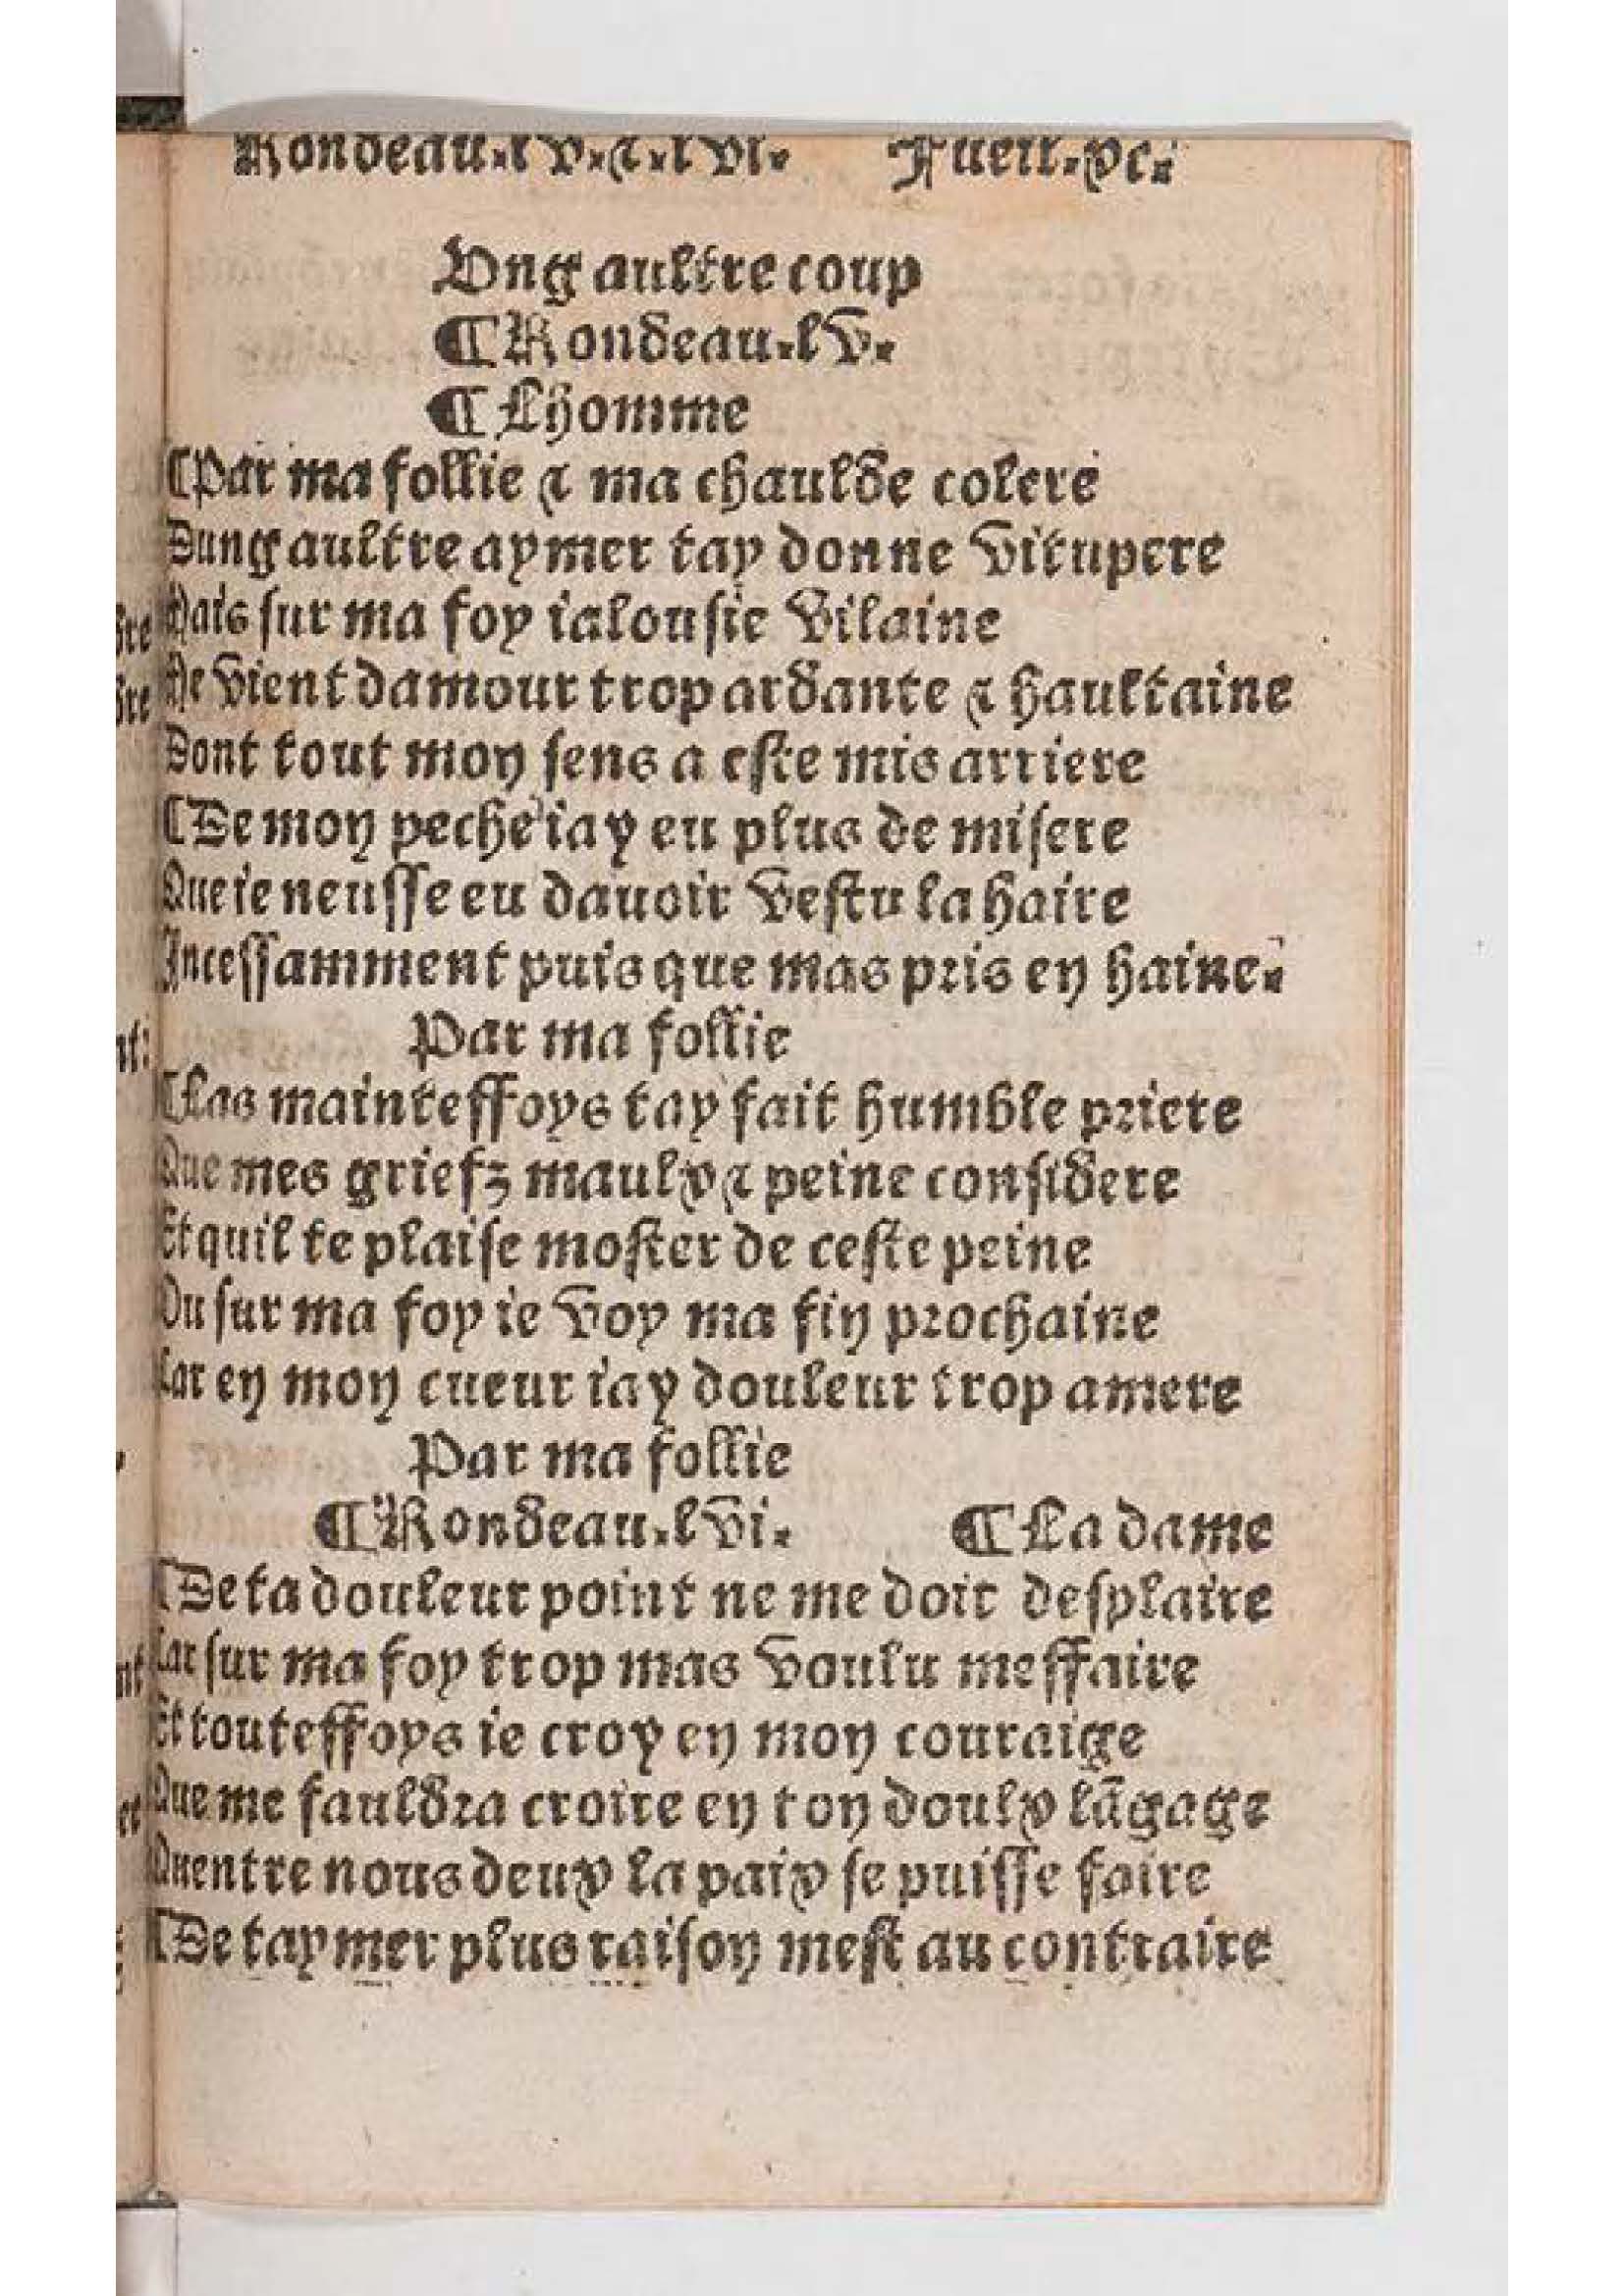 Rondeau.lv.&.lvi. Fueil.xc.
Ung aultre coup
¶Rondeau.lv.
¶Lhomme
¶Par ma follie & ma chaulde colere
Dung aultre aymer tay donne vitupere
Mais sur ma foy ialousie vilaine
Me vient damour trop ardante & haultaine
Dont tout mon sens a este mis arriere
¶De mon peche iay eu plus de misere
Que ie neusse eu dauoir vestu la haire
Incessamment puis que mas pris en haine.
Par ma follie
¶Las mainteffoys tay fait humble priere
Que mes griefz maulx & peine considere
Et quil te plaise moster de ceste peine
Ou sur ma foy ie voy ma fin prochaine
Car en mon cueur iay douleur trop amere
Par ma follie
¶Rondeau.lvi. ¶La dame
¶De ta douleur point ne me doit desplaire
Car sur ma foy trop mas voulu meffaire
Et touteffoys ie croy en mon couraige
Que me fauldra croire en ton doulx lãgage
Quentre nous deux la paix se puisse faire
¶De taymer plus raison mest au contraire